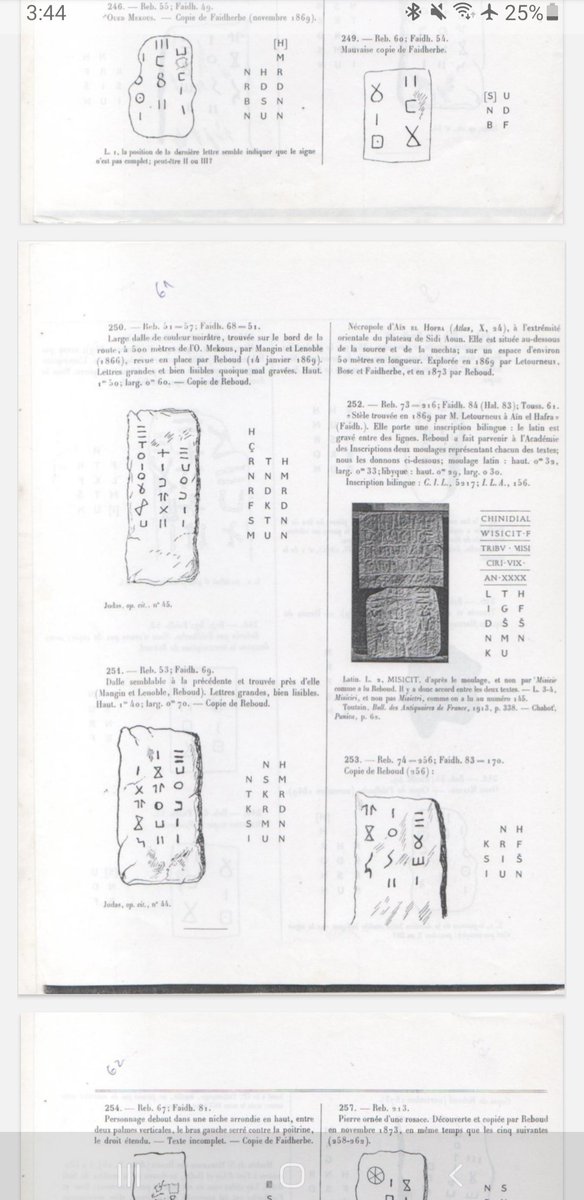 3:44
25%
246. — Reb. 55; Faidh. 49.
Oued Mekous. — Copie de Faidherbe (novembre 1869).
[H]
M
N H R
R D D
B S N
N U N
L. 1, la position de la dernière lettre semble indiquer que le signe
n'est pas complet; peut-être II ou III?
249. — Reb. 60; Faidh. 54.
Mauvaise copie de Faidherbe.
[S] U
N D
B F
61
250. — Reb. 51 = 57; Faidh. 68 = 51.
Large dalle de couleur noirâtre, trouvée sur le bord de la
route, à 500 mètres de l'O. Mekous, par Mangin et Lenoble
(1866), revue en place par Reboud (14 janvier 1869).
Lettres grandes et bien lisibles quoique mal gravées. Haut.
1m 50; larg. 0m 60. — Copie de Reboud.
H
Ç
R T H
N N M
R D R
F K D
S T N
M U N
Judas, op. cit., n° 45.
251. — Reb. 53; Faidh. 69.
Dalle semblable à la précédente et trouvée près d'elle
(Mangin et Lenoble, Reboud). Lettres grandes, bien lisibles.
Haut. 1m 40; larg. 0m 70. — Copie de Reboud.
N H
N S M
T K R
K R D
S M N
I U N
Judas, op. cit., n° 44.
Nécropole d'Aïn el Hofra (Atlas, X, 24), à l'extrémité
orientale du plateau de Sidi Aoun. Elle est située au-dessus
de la source et de la mechta; sur un espace d'environ
50 mètres en longueur. Explorée en 1869 par Letourneux,
Bosc et Faidherbe, et en 1873 par Reboud.
252. — Reb. 73 = 216; Faidh. 84 (Hal. 83); Touss. 61.
«Stèle trouvée en 1869 par M. Letourneux à Aïn el Hafra»
(Faidh.). Elle porte une inscription bilingue : le latin est
gravé entre des lignes. Reboud a fait parvenir à l'Académie
des Inscriptions deux moulages représentant chacun des textes;
nous les donnons ci-dessous; moulage latin : haut. 0m 32,
larg. 0m 33; libyque : haut. 0m 29, larg. 0 30.
Inscription bilingue : C. I. L., 5217; I. L. A., 156.
CHINIDIAL
WISICIT·F
TRIBV · MISI
CIRI·VIX·
AN·XXXX
L T H
I G F
D Š Š
N M N
K U
Latin. L. 2, MISICIT, d'après le moulage, et non pas Wisicir
comme a lu Reboud. Il y a donc accord entre les deux textes. — L. 3-4,
Misiciri, et non pas Misictri, comme on a lu au numéro 145.
Toutain, Bull. des Antiquaires de France, 1913, p. 338. — Chabot,
Punica, p. 62.
253. — Reb. 74 = 256; Faidh. 83 = 170.
Copie de Reboud (256) :
N H
K R F
S I Š
I U N
62
254. — Reb. 67; Faidh. 81.
Personnage debout dans une niche arrondie en haut, entre
deux palmes verticales, le bras gauche serré contre la poitrine,
le droit étendu. — Texte incomplet. — Copie de Faidherbe.
257. — Reb. 213.
Pierre ornée d'une rosace. Découverte et copiée par Reboud
en novembre 1873, en même temps que les cinq suivantes
(258-262).
S
N S